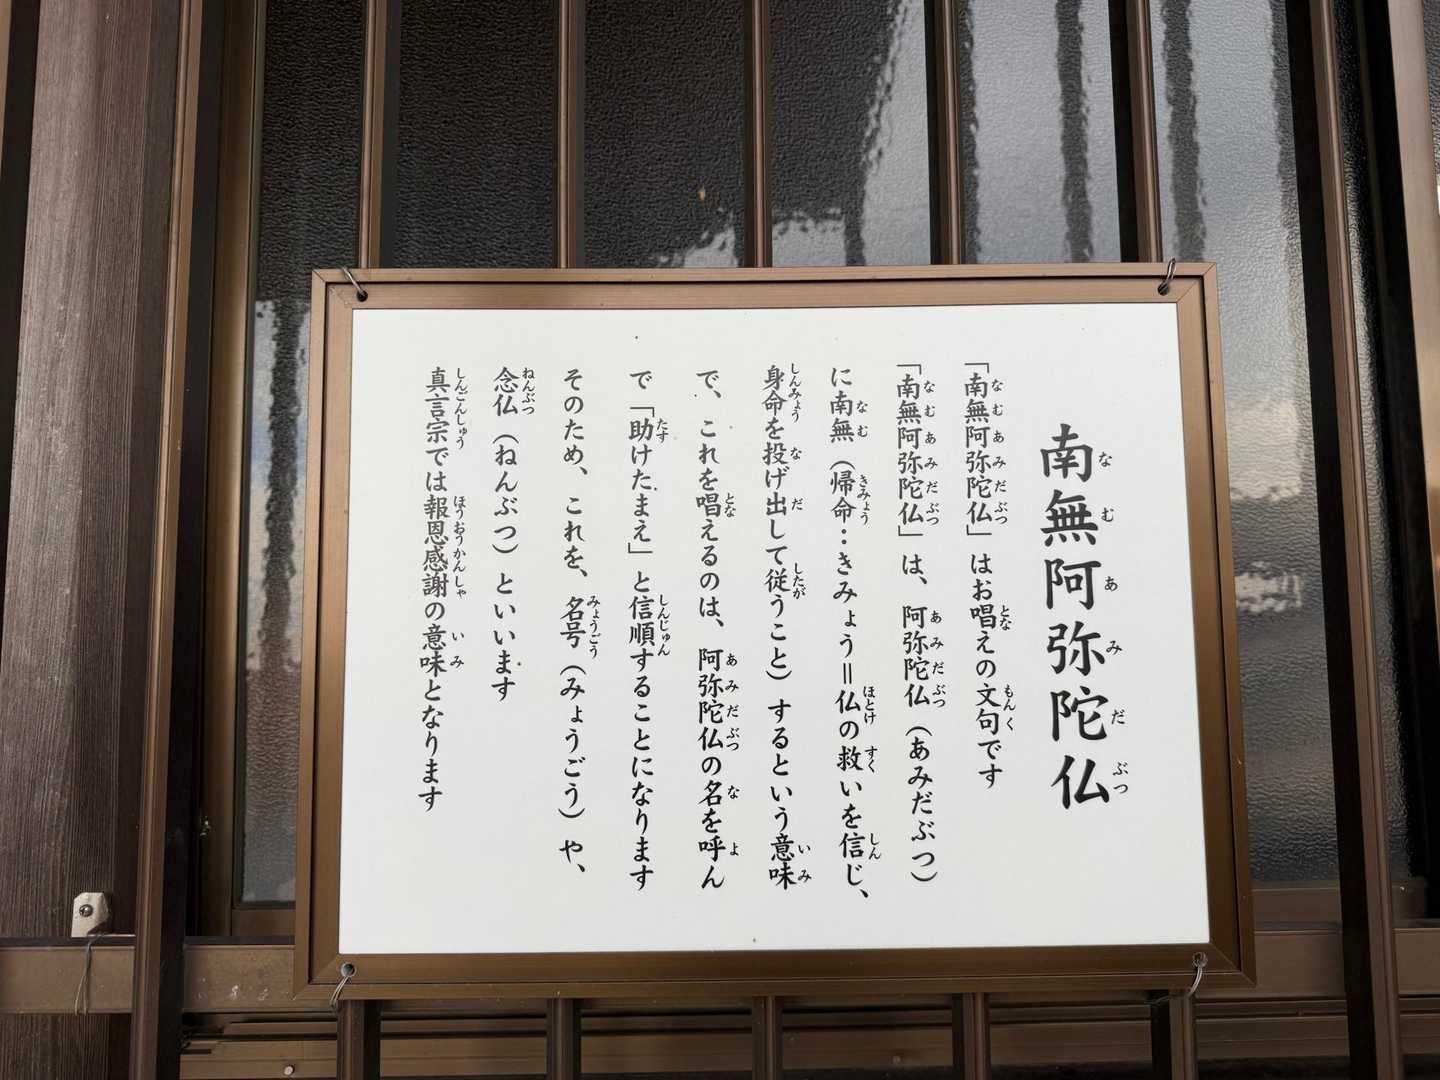 南無阿弥陀仏
「南無阿弥陀仏」はお唱えの文句です
「南無阿弥陀仏」は、阿弥陀仏（あみだぶつ）
に南無（帰命：きみょう＝仏の救いを信じ、
身命を投げ出して従うこと）するという意味
で、これを唱えるのは、阿弥陀仏の名を呼ん
で「助けたまえ」と信順することになります
そのため、これを、名号（みょうごう）や、
念仏（ねんぶつ）といいます
真言宗では報恩感謝の意味となります